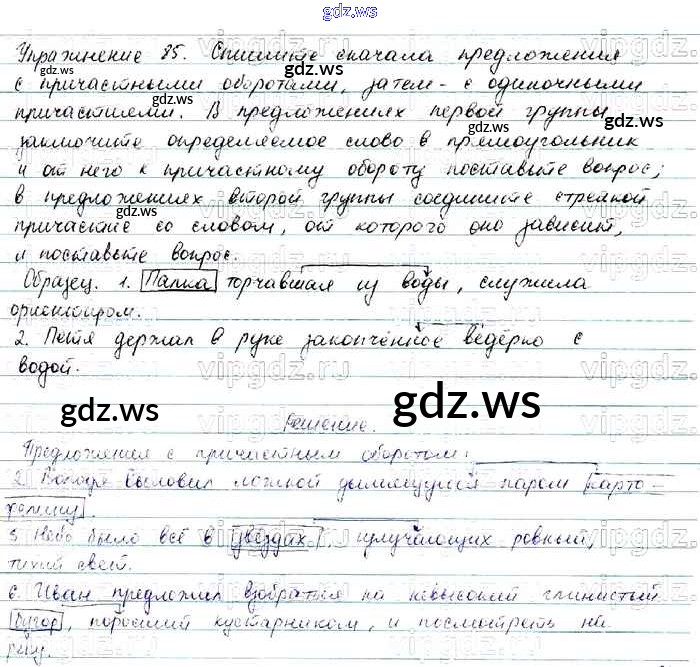 gdz.ws
Упражнение 85. Спишите сначала предложения
с причастными оборотами, затем - с одиночными
причастиями. В предложениях первой группы
заключите определяемое слово в прямоугольник
и от него к причастному обороту поставьте вопрос;
в предложениях второй группы соедините стрелкой
причастие со словом, от которого оно зависит,
и поставьте вопрос.
Образец. 1. Палка торчавшая из воды, служила
ориентиром.
2. Петя держал в руке закопчённое ведёрко с
водой.
gdz.ws
gdz.ws
Решение.
Предложения с причастным оборотом:
2. Володя выловил ложкой дымящуюся паром карто-
фелину.
5. Небо было всё в звёздах, излучающих ровный,
тихий свет.
6. Иван предложил взобраться на невысокий глинистый
бугор, поросший кустарником, и посмотреть на
реку.
gdz.ws